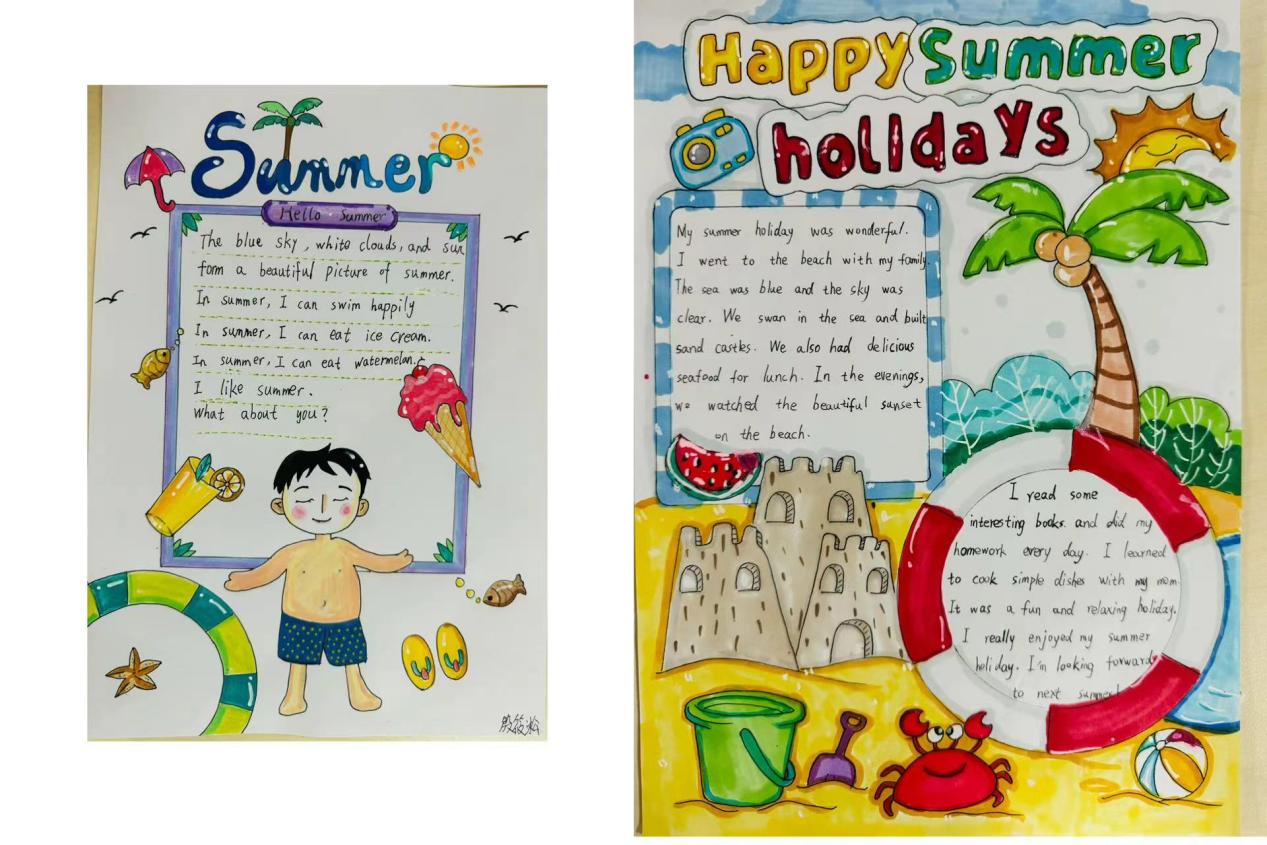 Summer
Hello Summer
The blue sky, white clouds, and sun
form a beautiful picture of summer.
In summer, I can swim happily
In summer, I can eat ice cream.
In summer, I can eat watermelon.
I like summer.
What about you?
Happy Summer
holidays
My summer holiday was wonderful.
I went to the beach with my family.
The sea was blue and the sky was
clear. We swan in the sea and built
sand castles. We also had delicious
seafood for lunch. In the evenings,
we watched the beautiful sunset
on the beach.
I read some
interesting books. and did my
homework every day. I learned
to cook simple dishes with my mom.
It was a fun and relaxing holiday.
I really enjoyed my summer
holiday. I'm looking forward
to next summer!